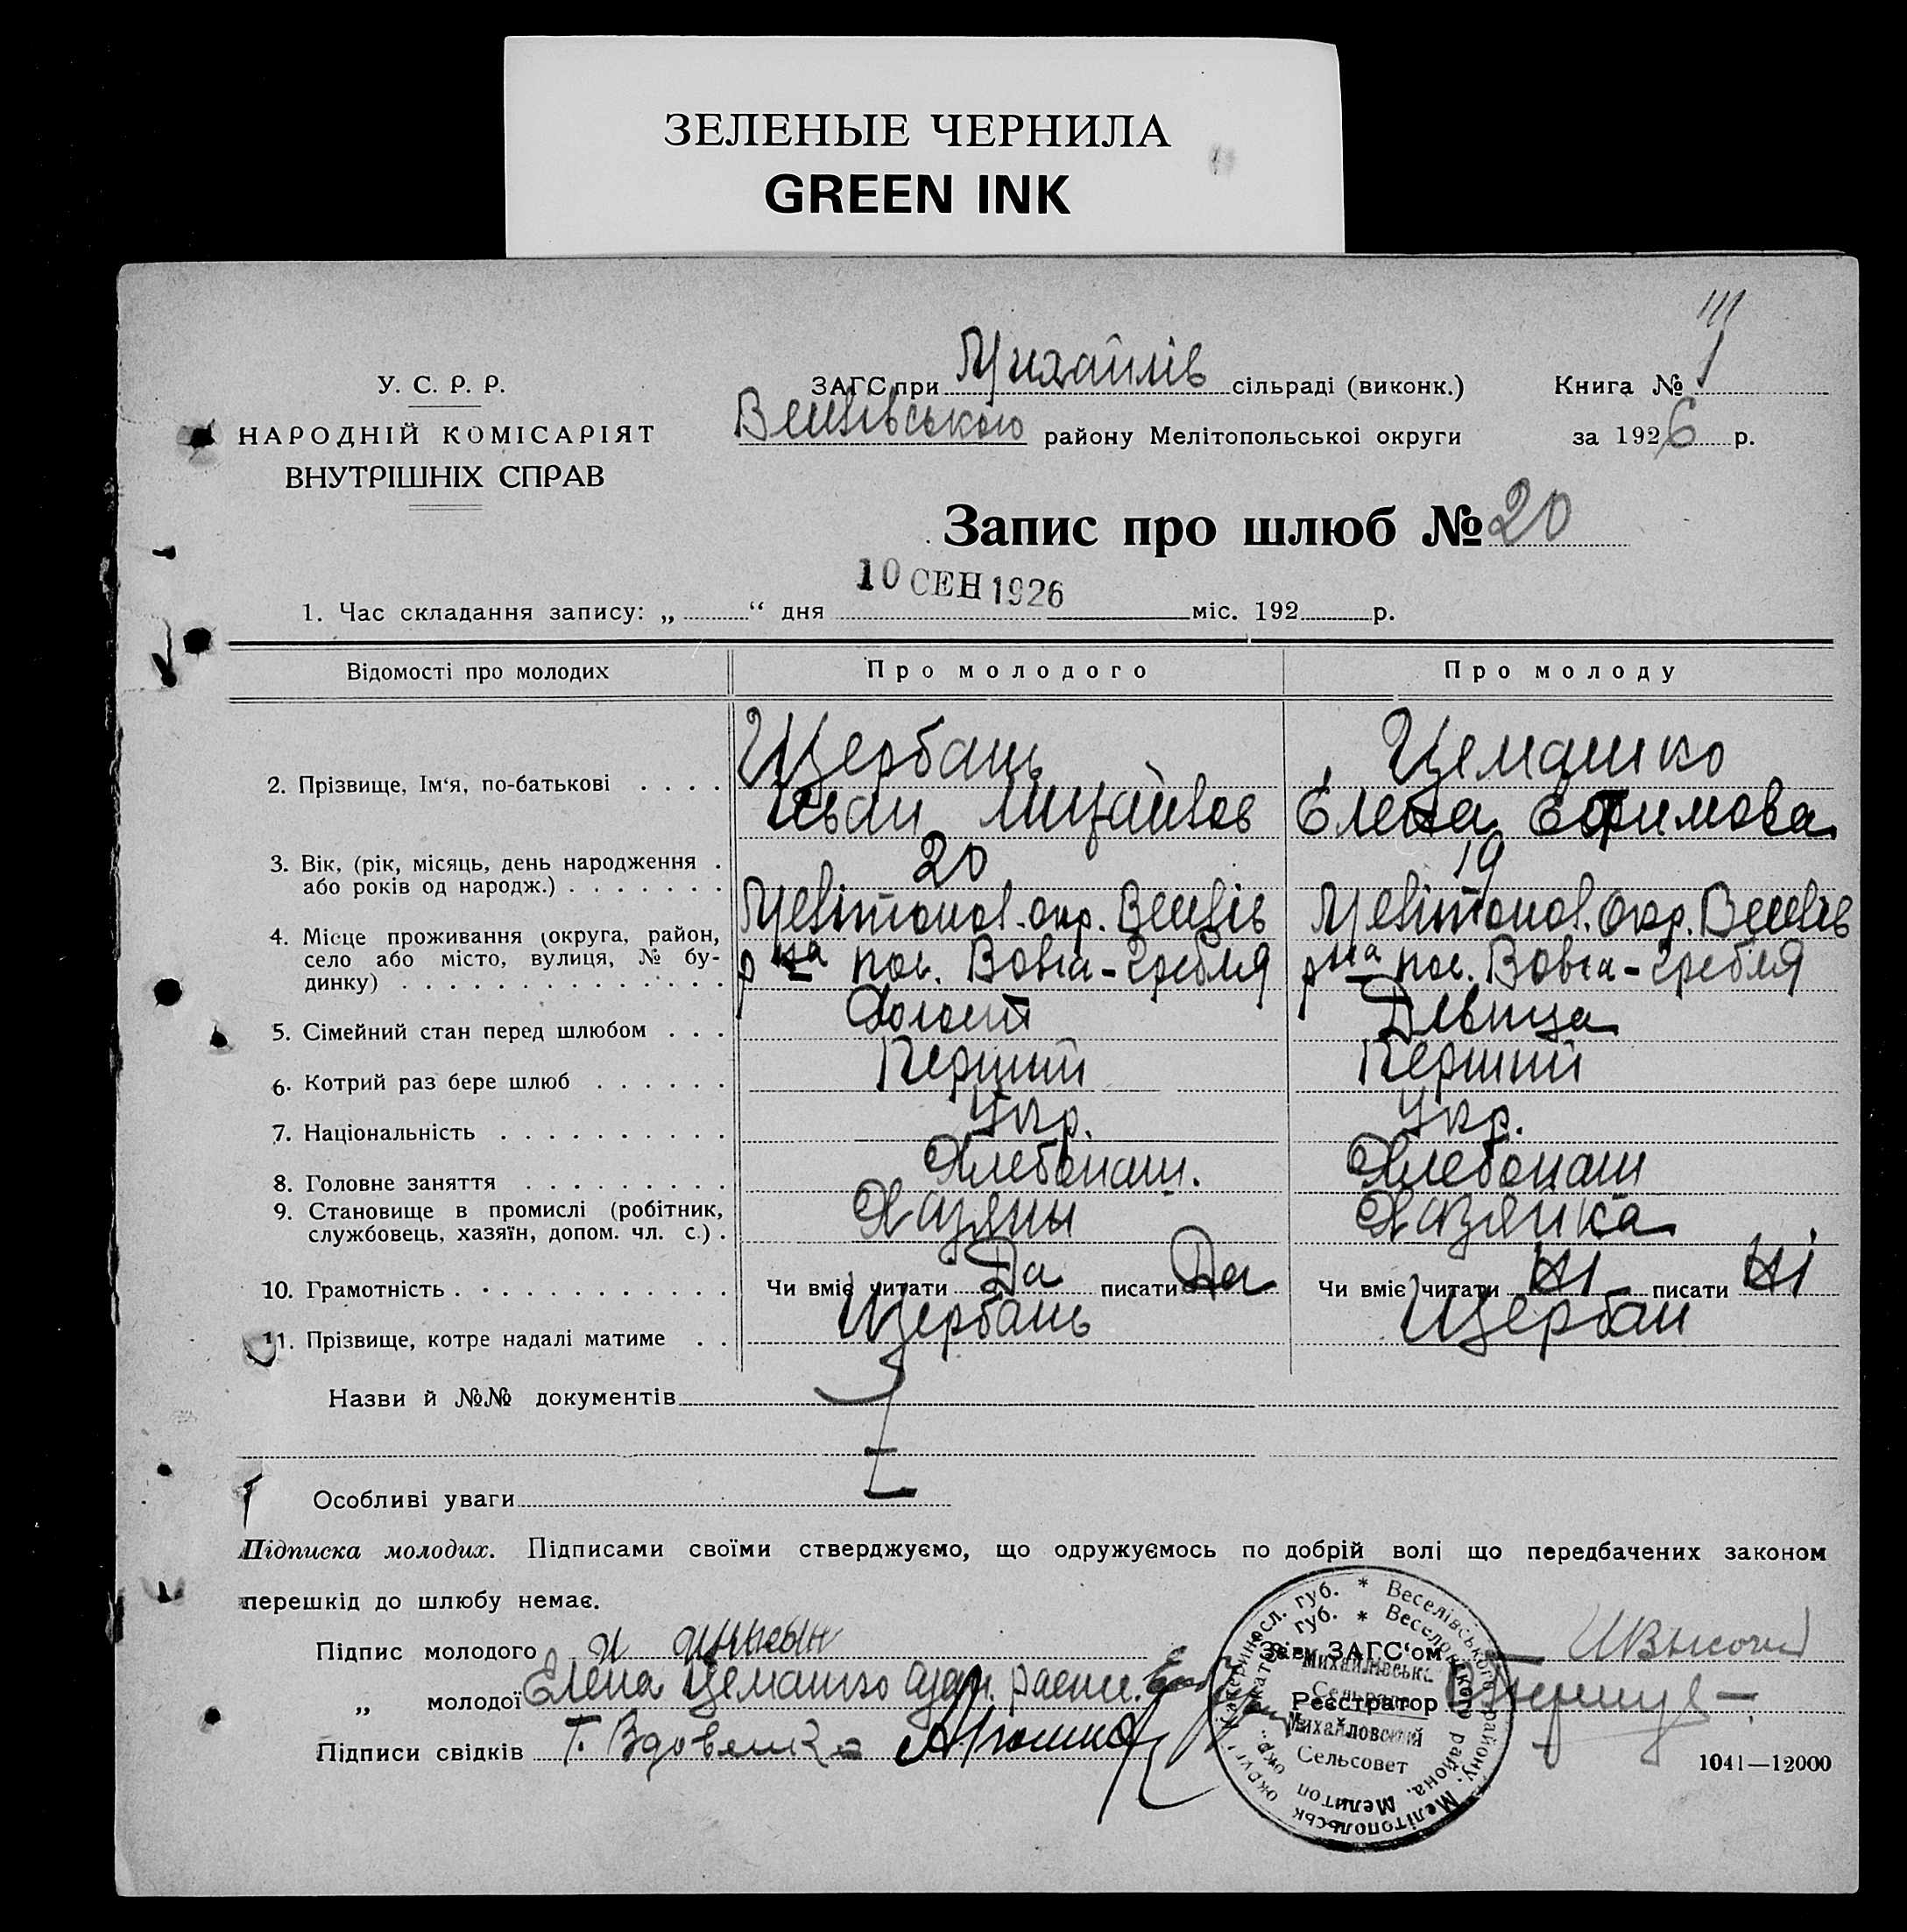 ЗЕЛЕНЫЕ ЧЕРНИЛА
GREEN INK
У. С. Р. Р.
НАРОДНІЙ КОМІСАРІЯТ
ВНУТРІШНІХ СПРАВ
ЗАГС при Михайлів сільраді (виконк.)
районy Мелітопольської округи
Книга № 1
за 1926 р.
Запис про шлюб № 20
1. Час складання запису: „ “ дня 10 СЕН 1926 міс. 192 р.
Відомості про молодих Про молодого Про молоду
2. Прізвище, Ім‘я, по-батькові . . . . Щербань Цемашко
Иван Елена Ефимова
3. Вік, (рік, місяць, день народження . 20 19
або років од народж.) . . . . . . .
4. Місце проживання (округа, район, Мелітопол. окр. Веселів Мелітопол. окр. Веселів
село або місто, вулиця, № бу- р на пос. Вовча-Гребля р на пос. Вовча-Гребля
динку) . . . . . . . . . . . . . .
5. Сімейний стан перед шлюбом . . . Холост Девица
6. Котрий раз бере шлюб . . . . . . Перший Перший
7. Національність . . . . . . . . . . Укр. Укр.
8. Головне заняття . . . . . . . . . Хлебопаш. Хлебопаш
9. Становище в промислі (робітник, Хазяины Хазяйка
службовець, хазяїн, допом. чл. с.) .
10. Грамотність . . . . . . . . . . . . Чи вміє читати Да писати Да Чи вміє читати Ні писати Ні
11. Прізвище, котре надалі матиме . . Щербань Щербан
Назви й №№ документів
Особливі уваги
Підписка молодих. Підписами своїми стверджуємо, що одружуємось по добрій волі що передбачених законом
перешкід до шлюбу немає.
Підпис молодого
Зав. ЗАГС‘ом
„ молодої Елена Цемашко
Реєстратор
Підписи свідків Г. Вдовенко
Михайлівськ.
Сельрада
Михайловский
Сельсовет
Катеринесл. губ. * Веселівського району. Мелітопольськ округ
губ. * Веселовского района. Мелитоп окр.
1041—12000